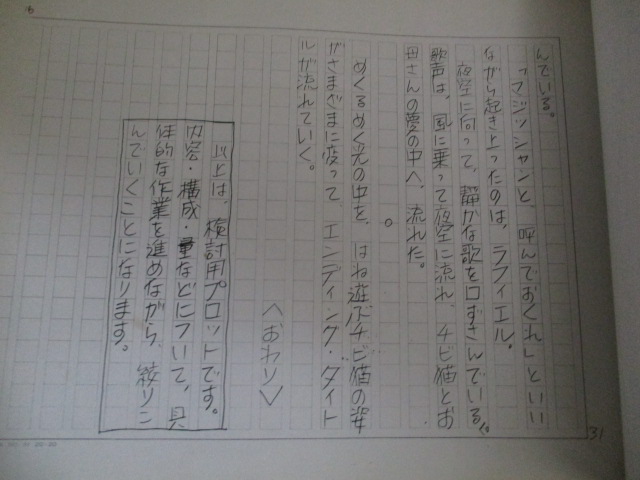 んでいる。
「マジッシャンと、呼んでおくれ」といい
ながら起き上ったのは、ラフィエル。
夜空に向って、静かな歌を口ずさんでいる。
歌声は、風に乗って夜空に流れ、チビ猫とお
母さんの夢の中へ、流れた。
。
めくるめく光の中を、はね遊ぶチビ猫の姿
がさまざまに変って、エンディング・タイト
ルが流れていく。
〈おわり〉
以上は、検討用プロットです。
内容・構成・量などについて、具
体的な作業を進めながら、絞りこ
んでいくことになります。
31